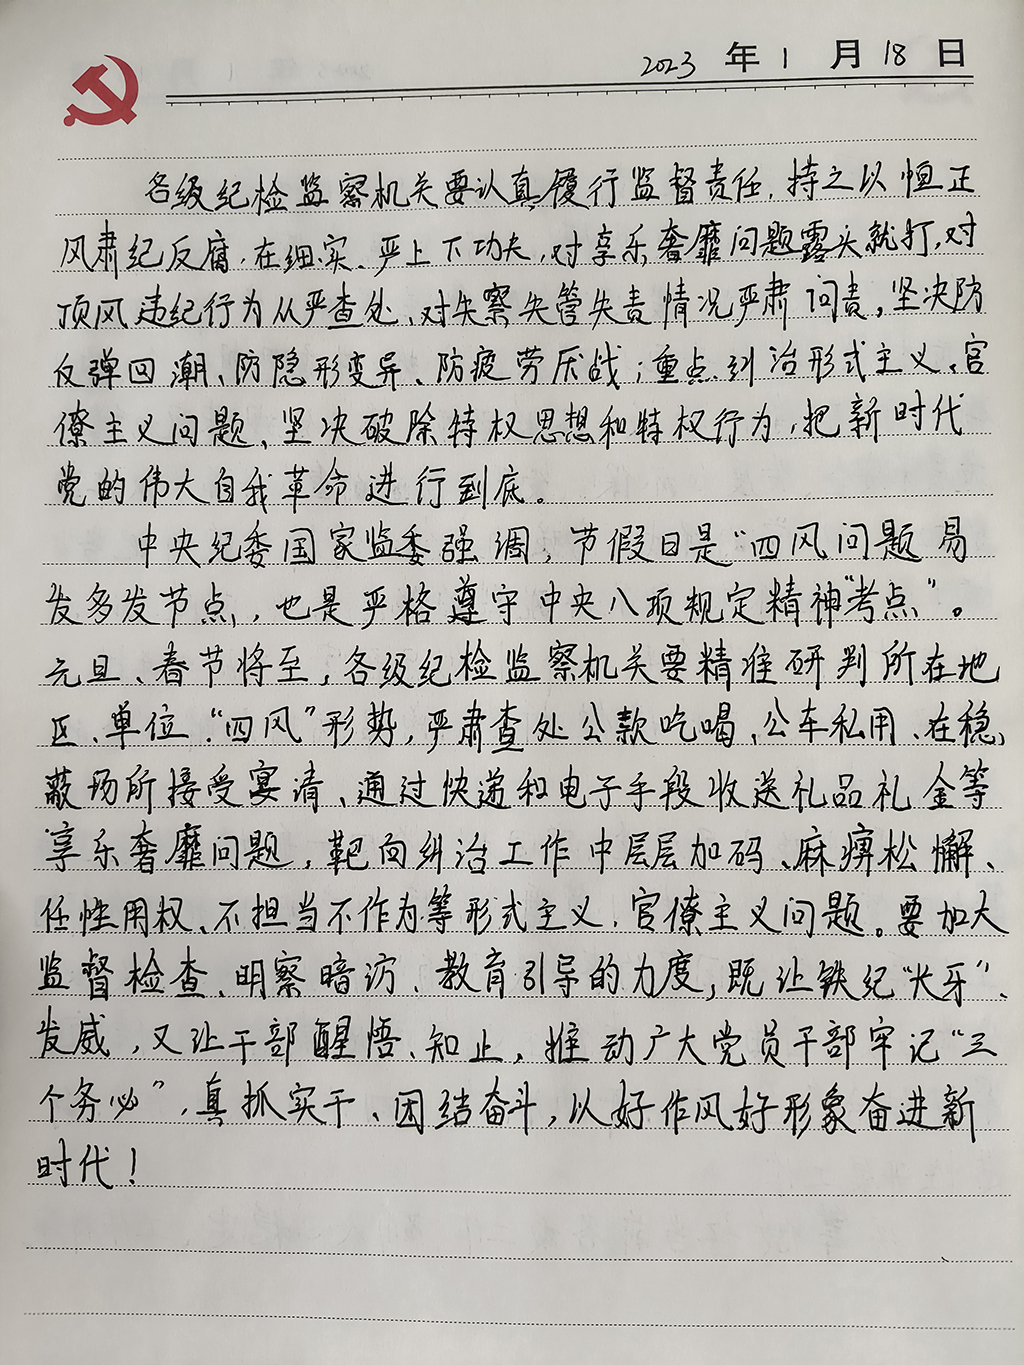 2023 年 1 月 18 日
各级纪检监察机关要认真履行监督责任,持之以恒正
风肃纪反腐,在细、实、严上下功夫,对享乐奢靡问题露头就打,对
顶风违纪行为从严查处、对失察失管失责情况严肃问责,坚决防
反弹回潮、防隐形变异、防疲劳厌战;重点纠治形式主义、官
僚主义问题、坚决破除特权思想和特权行为,把新时代
党的伟大自我革命进行到底。
中央纪委国家监委强调,节假日是“四风问题易
发多发节点,也是严格遵守中央八项规定精神“考点”。
元旦、春节将至,各级纪检监察机关要精准研判所在地
区、单位“四风”形势,严肃查处公款吃喝、公车私用、在稳
蔽场所接受宴请、通过快递和电子手段收送礼品礼金等
享乐奢靡问题,靶向纠治工作中层层加码、麻痹松懈、
任性用权、不担当不作为等形式主义、官僚主义问题。要加大
监督检查、明察暗访、教育引导的力度,既让铁纪“长牙”、
发威,又让干部醒悟、知止,推动广大党员干部牢记“三
个务必”,真抓实干、团结奋斗,以好作风好形象奋进新
时代!